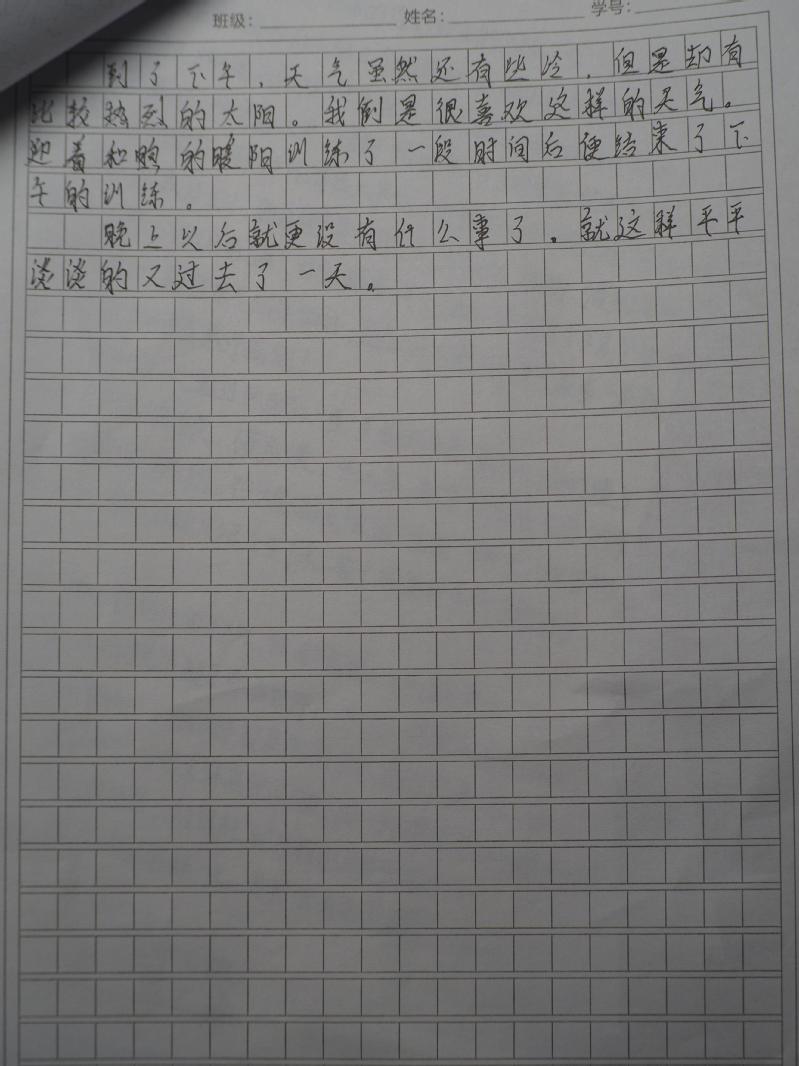 班级： 姓名： 学号：
到了下午，天气虽然还有些冷，但是却有
比较热烈的太阳。我倒是很喜欢这样的天气。
迎着和煦的暖阳训练了一段时间后便结束了下
午的训练。
晚上以后就更没有什么事了。就这样平平
淡淡的又过去了一天。